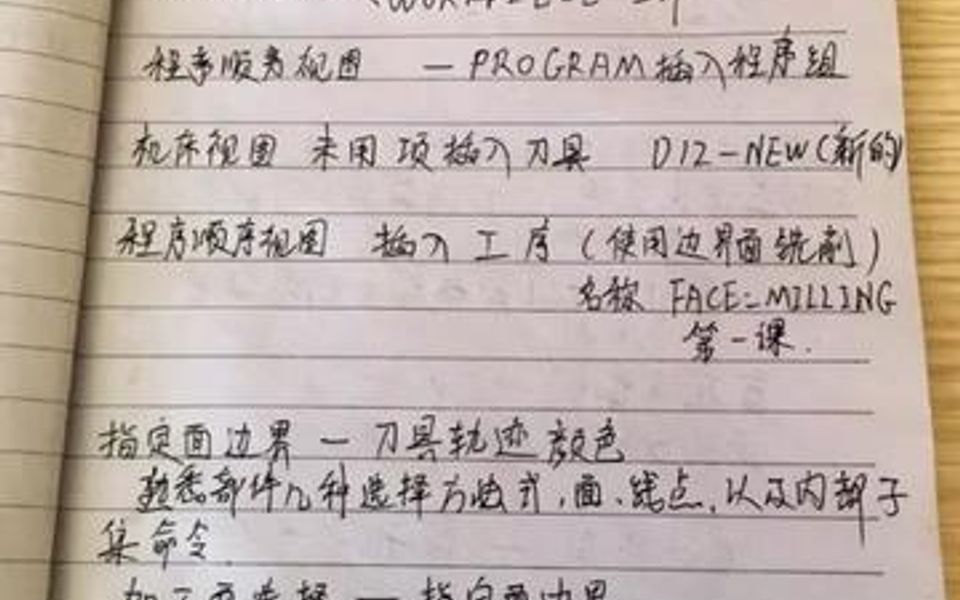 程序顺序视图 — PROGRAM插入程序组
机床视图 未用项插入刀具 D12-NEW(新的)
程序顺序视图 插入工序(使用边界面铣削)
名称 FACE-MILLING
第一课.
指定面边界 — 刀具轨迹颜色
熟悉部件几种选择方法式,面、线点,以及内部子
集命令.